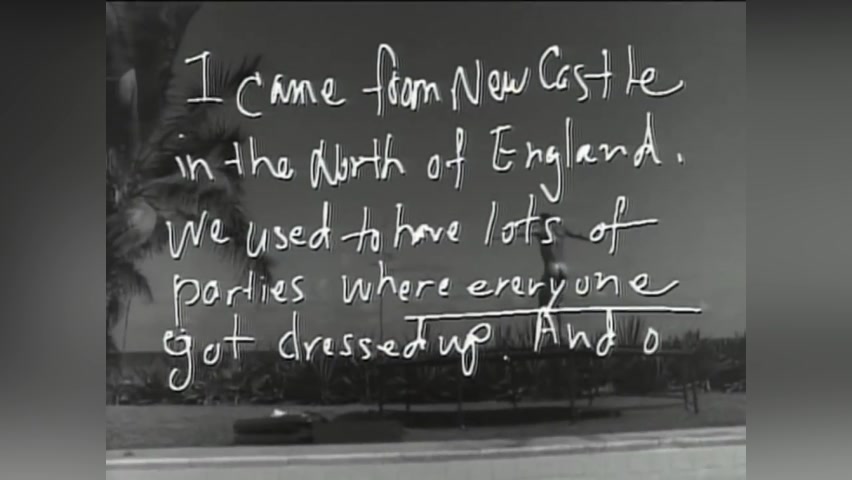 I came from NewCastle
in the North of England.
We used to have lots of
parties where everyone
got dressed up. And o